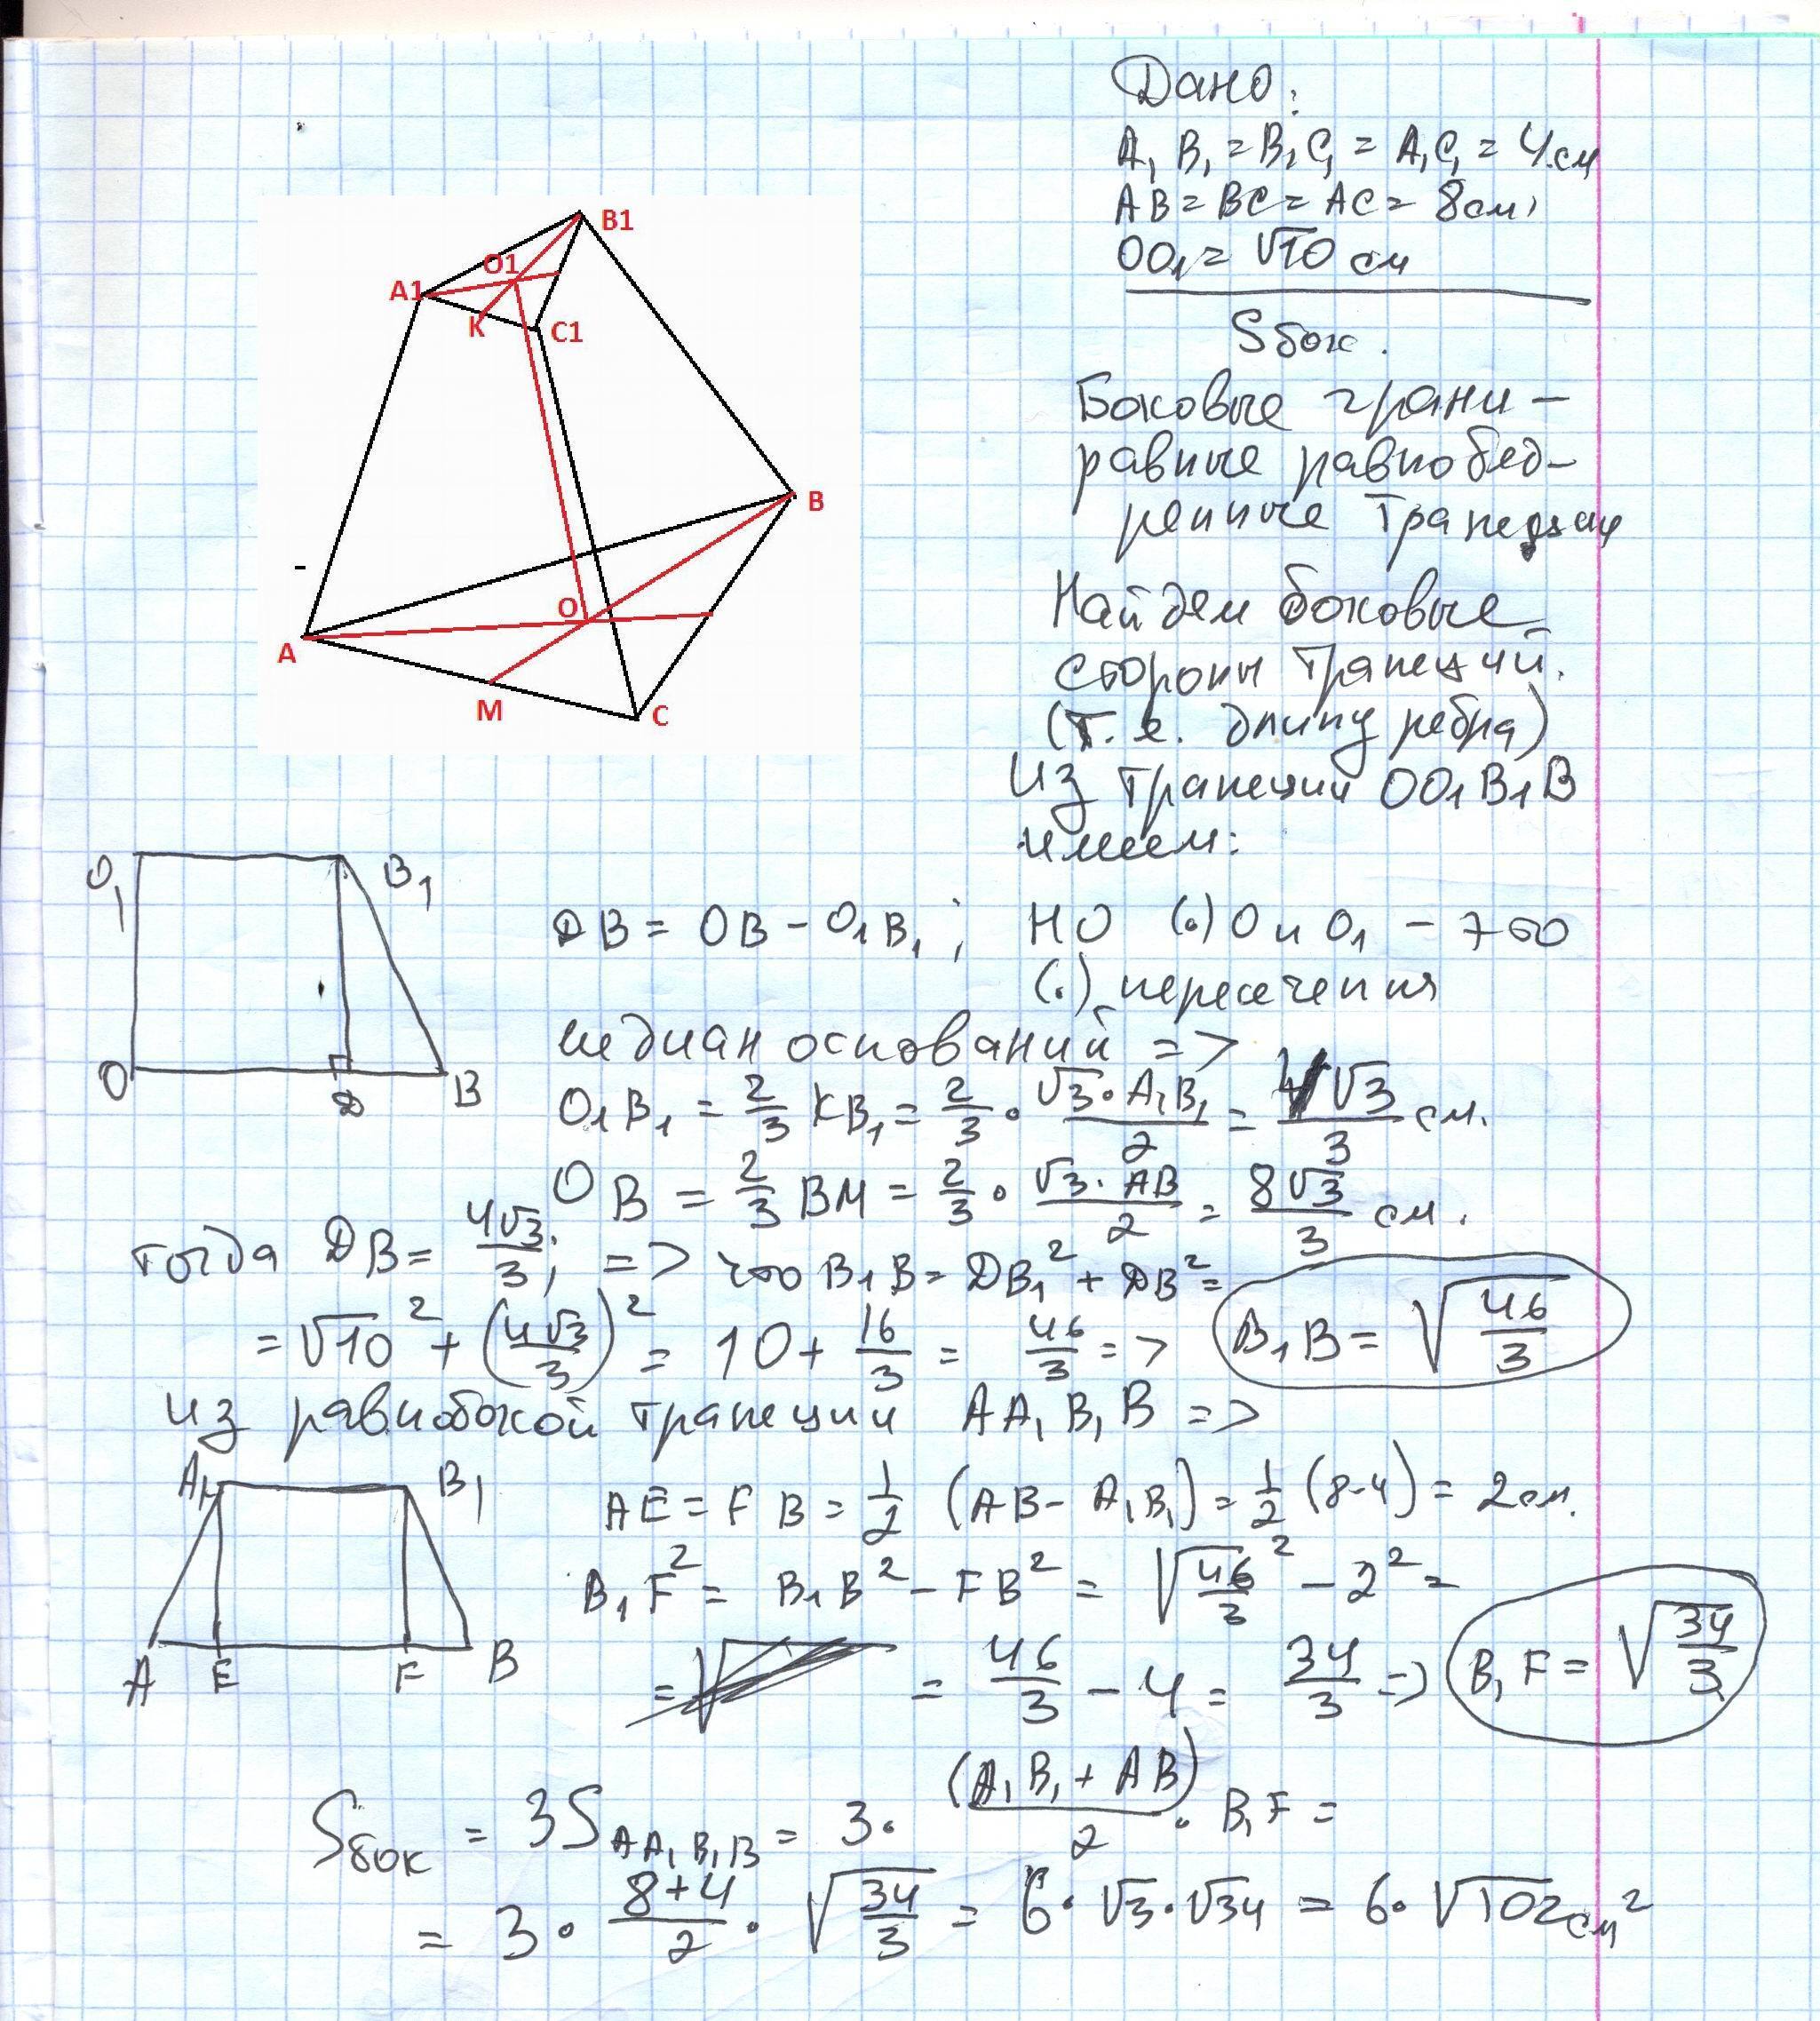 Дано:
A₁B₁ = B₁C₁ = A₁C₁ = 4 см
AB = BC = AC = 8 см,
OO₁ = √10 см
Sбок.
Боковые грани –
равные равнобед-
ренные трапеции
Найдем боковые
стороны трапеций.
(т.е. длину ребра)
Из трапеции OO₁B₁B
имеем:
B1
O1
A1
K
C1
B
O
A
M
C
O₁ B₁
O D B
DB = OB – O₁B₁; НО (.) O и O₁ – это
(.) пересечения
медиан оснований =>
O₁B₁ = 2/3 KB₁ = 2/3 · √3·A₁B₁/2 = 4√3/3 см.
OB = 2/3 BM = 2/3 · √3·AB/2 = 8√3/3 см.
тогда DB = 4√3/3; => что B₁B = DB₁² + DB² =
= √10² + (4√3/3)² = 10 + 16/3 = 46/3 => B₁B = √46/3
из равнобокой трапеции AA₁B₁B =>
A₁ B₁
A E F B
AE = FB = 1/2 (AB – A₁B₁) = 1/2 (8-4) = 2 см.
B₁F² = B₁B² – FB² = √46/3² – 2² =
= = 46/3 – 4 = 34/3 => B₁F = √34/3
Sбок = 3S AA₁B₁B = 3 · (A₁B₁ + AB)/2 · B₁F =
= 3 · 8+4/2 · √34/3 = 6 · √3 · √34 = 6 · √102 см²